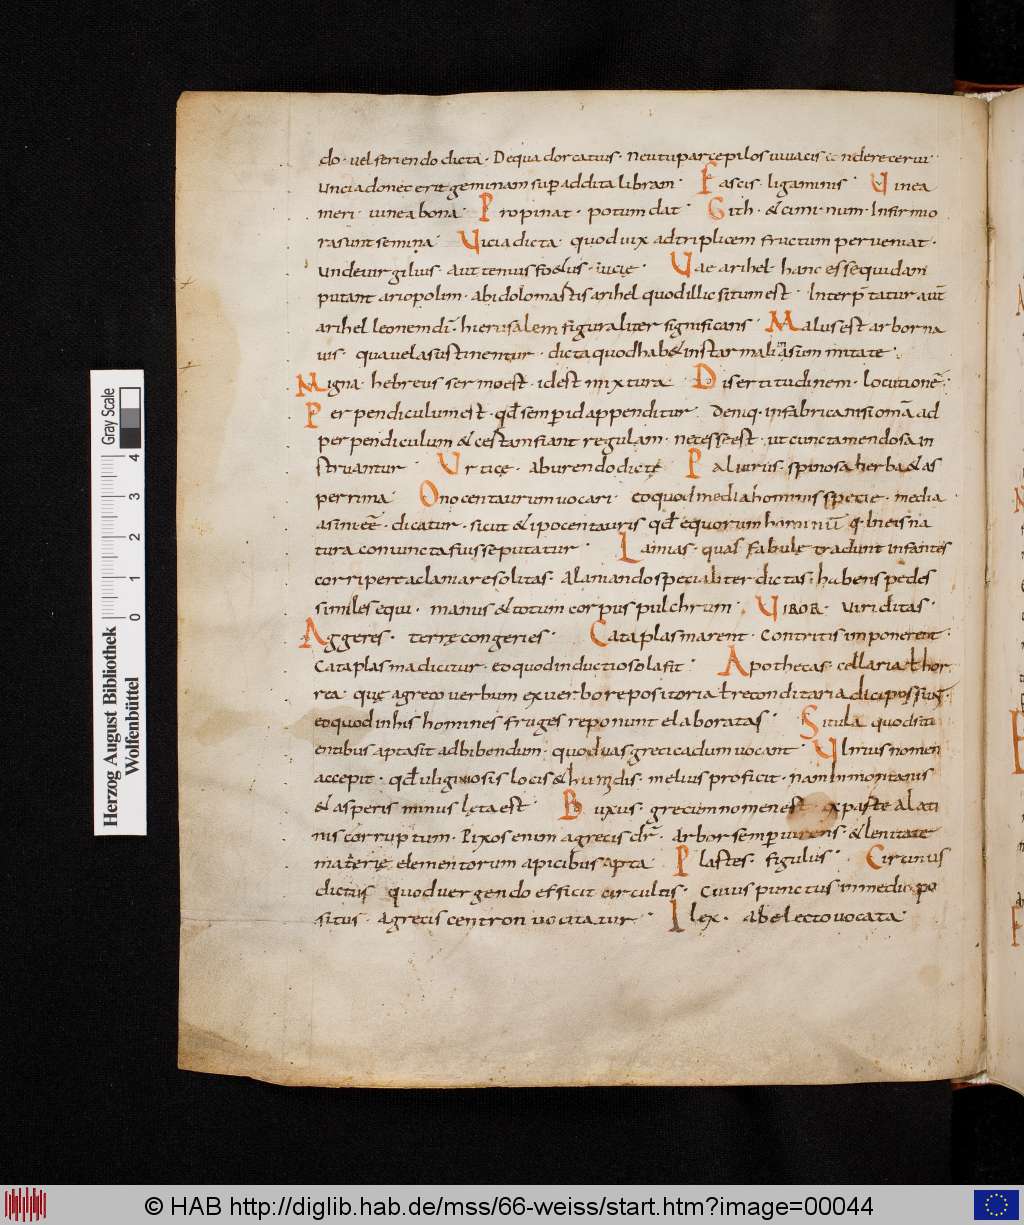 do · vel feriendo dicta · De qua dorcatius · Neu tu parce pilos vivacis condere cervi ·
Uncia donec erit geminam sup addita libram · Fascis · ligaminis · Vinea
meri · vinea bona · Propinat · potum dat · Gith · & cimi·num · Infirmio
ra sunt semina · Vicia dicta · quod vix ad triplicem fructum perveniat ·
Unde virgilius · aut tenuis foetus · vicię · Vae arihel · hanc esse quidam
putant ariopolim · ab idolo mastis arihel quod illic situm est · Interp̄tatur aut̄
arihel leonem dī · hierusalem figuraliter significans · Malus est arbor na
vis · qua vela sustinentur · dicta quod hab& instar mali in summitate ·
Migna · hebreus sermo est · id est mixtura · Disertitudinem · locutionē ·
Perpendiculum est · qd̄ semp id appenditur · Deniq · in fabrica nisi omā ad
perpendiculum & certam fiant regulam · necesse est · ut cuncta mendosa in
struantur · Urticę · ab urendo dictę · Paliurus · spinosa herba & as
perrima · Onocentaurum vocari · eo quod media hominis specie · media
asini eē · dicatur · sicut & ipocentauris qd̄ equorum hominū q· in eis na
tura coniuncta fuisse putatur · Lamias · quas fabulę tradunt infantes
corripere ac laniare solitas · a laniando specialiter dictas · habens pedes
similes equi · manus & totum corpus pulchrum · VIROR · viriditas ·
Aggeres · terrę congeries · Cataplasmarent · contritis imponerent ·
Cataplasma dicitur · eo quod inductio sola sit · Apothecas · cellaria ł hor
rea · quę a greco verbum ex verbo repositoria ł reconditaria dici possunt
eo quod in his homines fruges reponunt elaboratas · Situla · quod siti
entibus apta sit ad bibendum · quod vas greci cadum vocant · Ulmus nomen
accepit · qd̄ uliginosis locis & humidis · melius proficit · nam in montanis
& asperis minus lęta est · Buxus · grecum nomen est · ex parte a lati
nis corruptum · Pixos enim a grecis dr̄ · arbor semp virens · & lenitate
materię elementorum apicibus apta · Plastes · figulus · Circinus
dictus · quod vergendo efficit circultis · Cuius punctus in medio po
situs · a grecis centron vocitatur · Ilex · ab electo vocata ·
Herzog August Bibliothek
Wolfenbüttel
Gray Scale
0 1 2 3 4
© HAB http://diglib.hab.de/mss/66-weiss/start.htm?image=00044